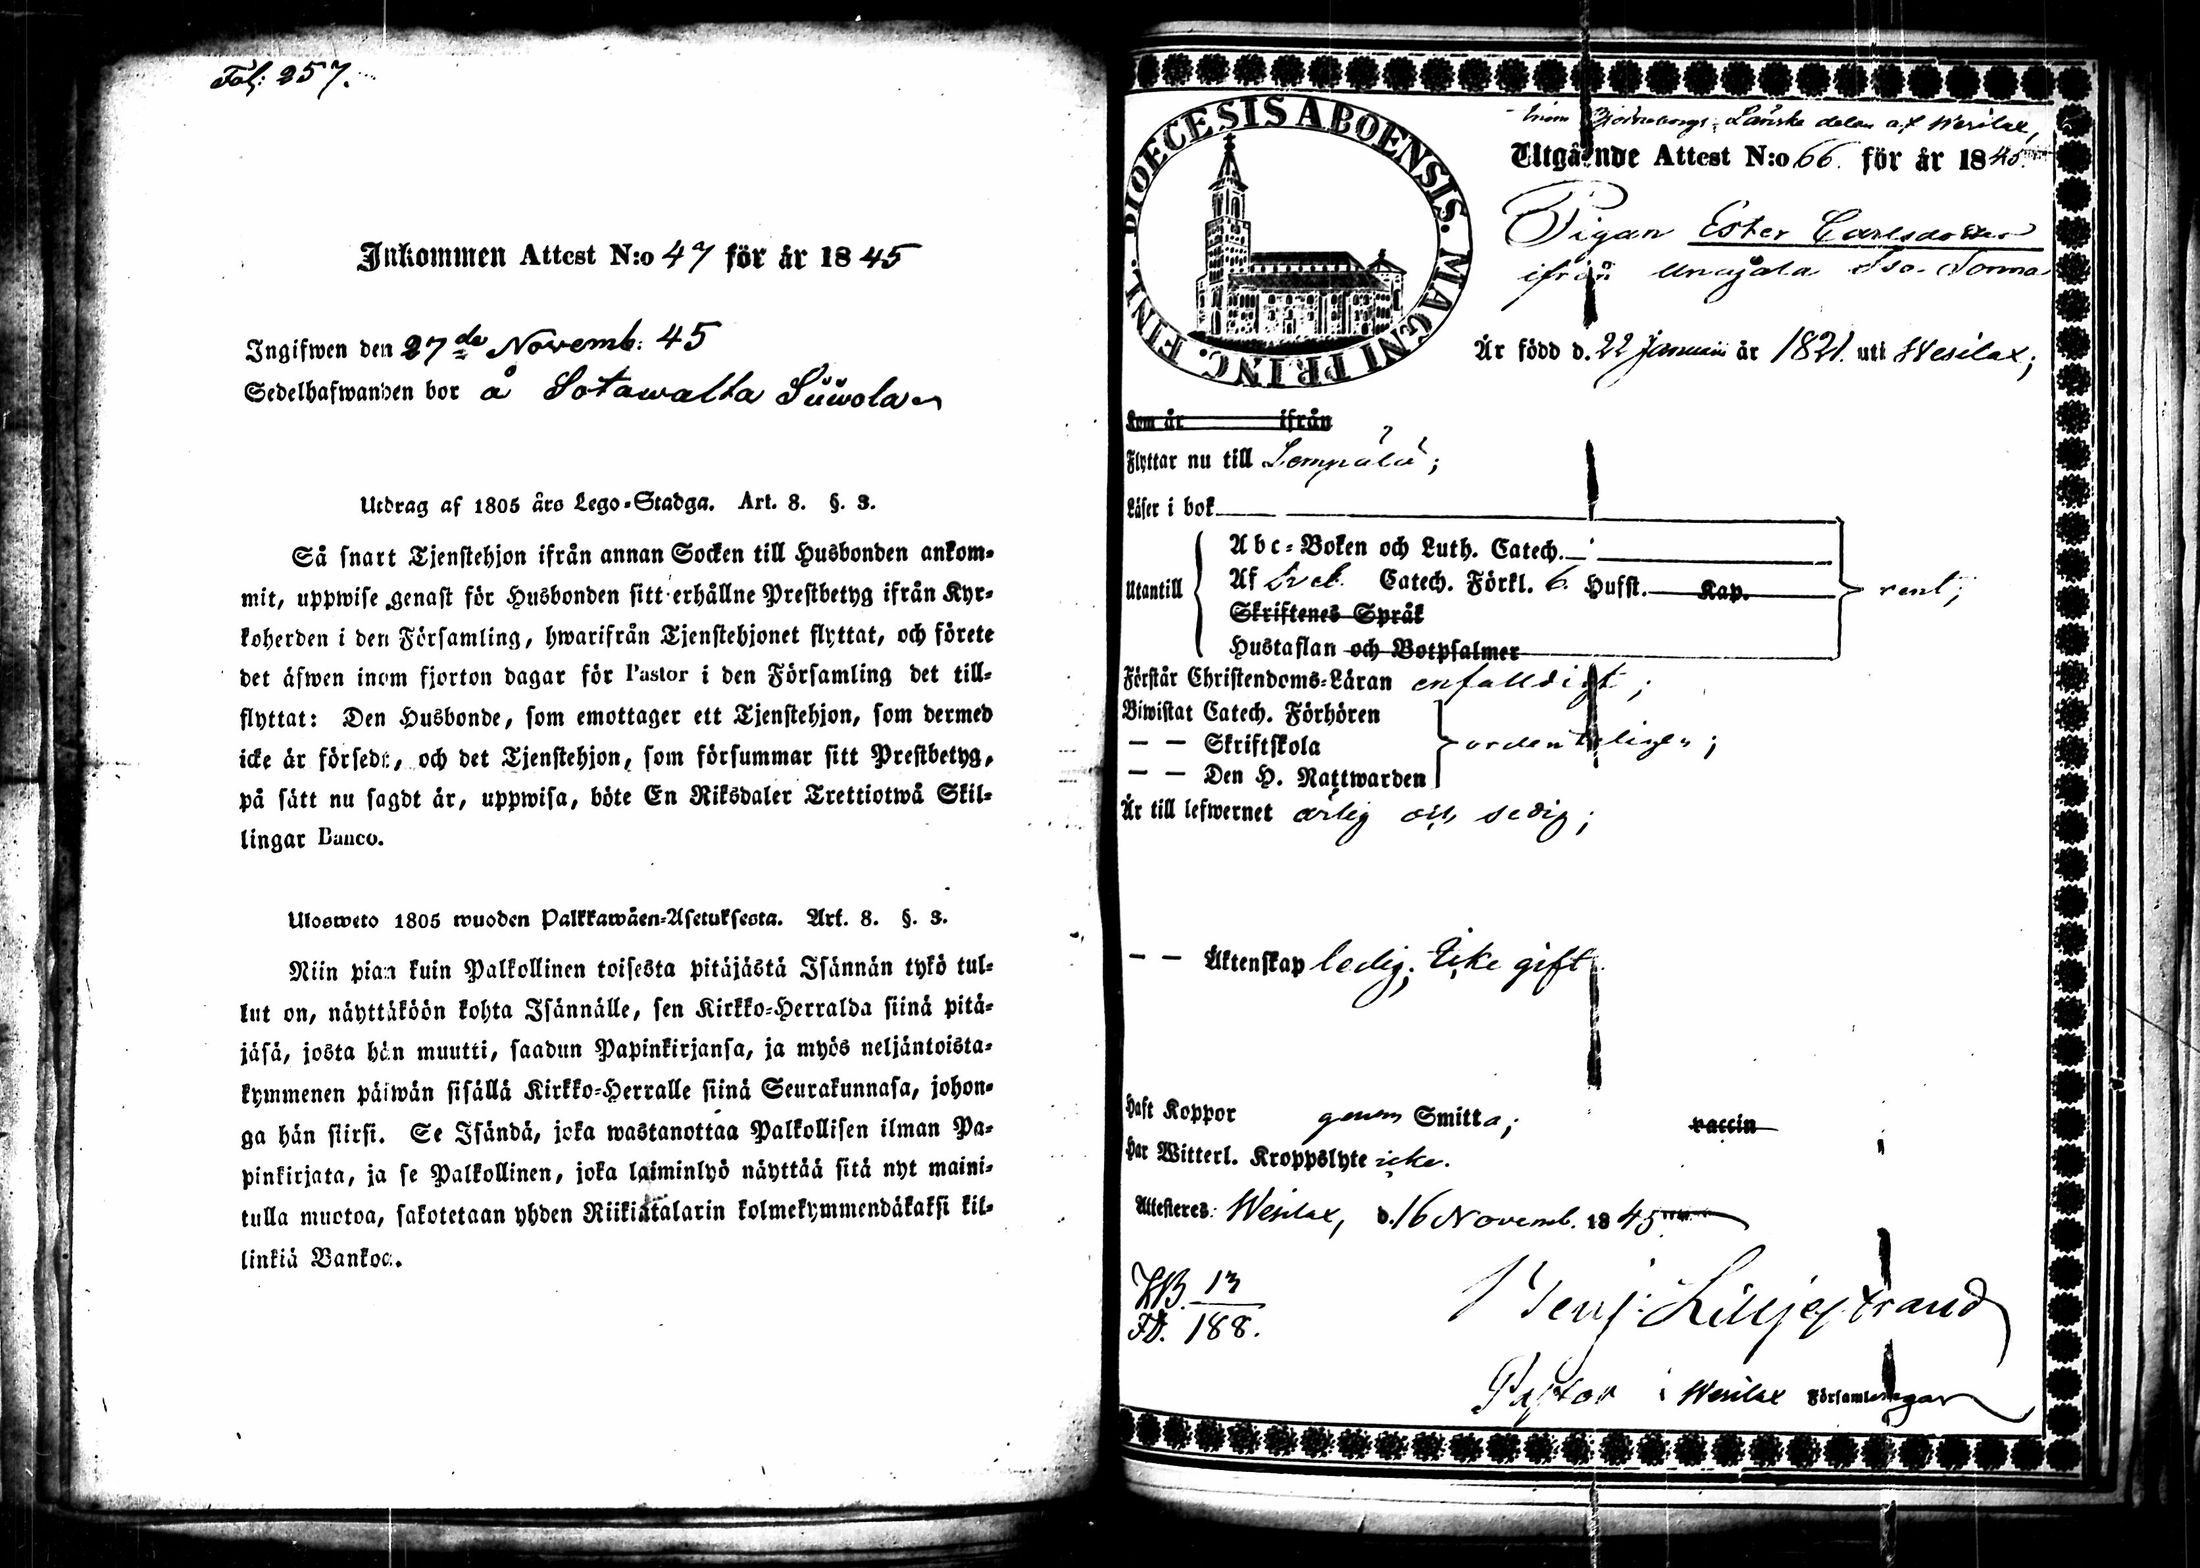 Fol: 257.
Inkommen Attest N:o 47 för år 1845
Ingifwen den 27de Novemb: 45
Sedelhafwanden bor å Sotawalta Süwola
Utdrag af 1805 års Lego-Stadga. Art. 8. §. 3.
Så snart Tjenstehjon ifrån annan Socken till Husbonden ankom-
mit, uppwise genast för Husbonden sitt erhållne Prestbetyg ifrån Kyr-
koherden i den Församling, hwarifrån Tjenstehjonet flyttat, och förete
det äfwen inom fjorton dagar för Pastor i den Församling det till-
flyttat: Den Husbonde, som emottager ett Tjenstehjon, som dermed
icke är försedt, och det Tjenstehjon, som försummar sitt Prestbetyg,
på sätt nu sagdt är, uppwisa, böte En Riksdaler Trettiotwå Skil-
lingar Banco.
Ulosweto 1805 wuoden Palkkawäen-Asetuksesta. Art. 8. §. 3.
Niin pian kuin Palkollinen toisesta pitäjästä Isännän tykö tul-
lut on, näyttäköön kohta Isännälle, sen Kirkko-Herralda siinä pitä-
jäsä, josta hän muutti, saadun Papinkirjansa, ja myös neljäntoista-
kymmenen päiwän sisällä Kirkko-Herralle siinä Seurakunnasa, johon-
ga hän siirsi. Se Isändä, joka wastanottaa Palkollisen ilman Pa-
pinkirjata, ja se Palkollinen, joka laiminlyö näyttää sitä nyt maini-
tulla muotoa, sakotetaan yhden Riikintalarin kolmekymmendäkaksi kil-
linkiä Bankoa.
DIOECESIS ABOENSIS. MAGNI PRINC. FINL.
inom Björneborgs Länska delen af Wesilax,
Utgående Attest N:o 66. för år 1845.
Pigan Ester Carlsdotter
ifrån
Är född d. 22 Januarii år 1821. uti Wesilax;
Kom år ifrån
Flyttar nu till Lempälä;
Läser i bok
Abc-Boken och Luth. Catech.
Utantill Af Sveb. Catech. Förkl. 6. Hufst. Kap. rent;
Skriftenes Språk
Hustaflan och Botpsalmer
Förstår Christendoms-Läran enfalldigt;
Biwistat Catech. Förhören
— — Skriftskola ordenteligen;
— — Den H. Nattwarden
Är till lefwernet ärlig och sedig;
— — Äktenskap ledig; Icke gift
Haft Koppor genom Smitta; vaccin
Har Witterl. Kroppslyte icke.
Attesteres: Wesilax, d. 16 Novemb. 1845
KB. 13
FD. 188.
Benj. Lilljestrand
Pastor i Wesilax Församlingar